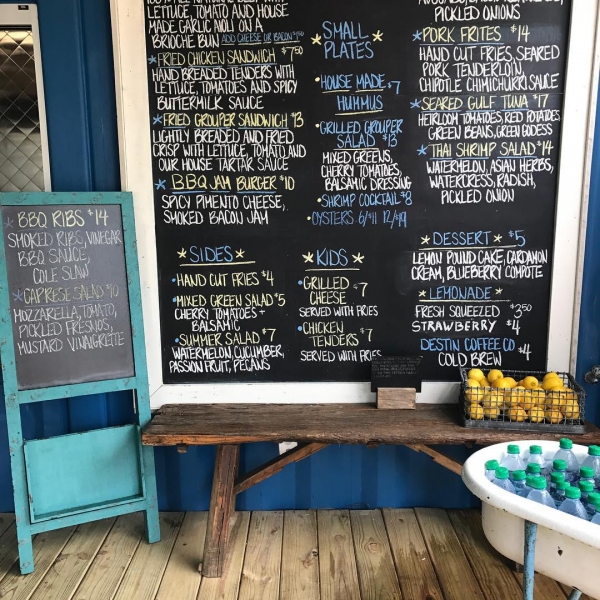 LETTUCE, TOMATO AND HOUSE
MADE GARLIC AIOLI ON A
BRIOCHE BUN ADD CHEESE OR BACON
*FRIED CHICKEN SANDWICH $7.50
HAND BREADED TENDERS WITH
LETTUCE, TOMATOES AND SPICY
BUTTERMILK SAUCE
*FRIED GROUPER SANDWICH $13
LIGHTLY BREADED AND FRIED
CRISP WITH LETTUCE, TOMATO AND
OUR HOUSE TARTAR SAUCE
*BBQ JAM BURGER $10
SPICY PIMENTO CHEESE,
SMOKED BACON JAM
*SIDES*
•HAND CUT FRIES $4
•MIXED GREEN SALAD $5
CHERRY TOMATOES +
BALSAMIC
•SUMMER SALAD $7
WATERMELON, CUCUMBER,
PASSION FRUIT, PECANS
*SMALL
PLATES*
•HOUSE MADE $7
HUMMUS
•GRILLED GROUPER
SALAD $13
MIXED GREENS,
CHERRY TOMATOES,
BALSAMIC DRESSING
•SHRIMP COCKTAIL $8
•OYSTERS 6/$11 12/$19
*KIDS*
•GRILLED $7
CHEESE
SERVED WITH FRIES
•CHICKEN
TENDERS $7
SERVED WITH FRIES
PICKLED ONIONS
*PORK FRITES $14
HAND CUT FRIES, SEARED
PORK TENDERLOIN,
CHIPOTLE CHIMICHURRI SAUCE
*SEARED GULF TUNA $17
HEIRLOOM TOMATOES, RED POTATOES
GREEN BEANS, GREEN GODDESS
*THAI SHRIMP SALAD $14
WATERMELON, ASIAN HERBS,
WATERCRESS, RADISH,
PICKLED ONION
*DESSERT* $5
LEMON POUND CAKE, CARDAMON
CREAM, BLUEBERRY COMPOTE
*LEMONADE*
FRESH SQUEEZED $3.50
STRAWBERRY $4
DESTIN COFFEE CO $4
COLD BREW
*BBQ RIBS $14
SMOKED RIBS, VINEGAR
BBQ SAUCE,
COLE SLAW
*CAPRESE SALAD $10
MOZZARELLA, TOMATO,
PICKLED FRESNOS,
MUSTARD VINAIGRETTE